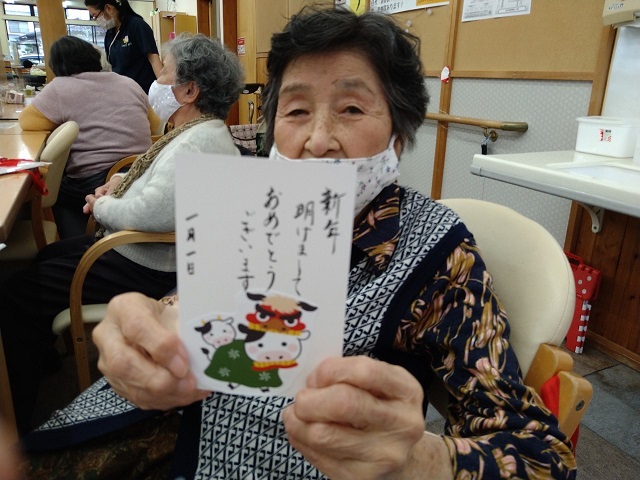 新年
明けまして
おめでとう
ございます
一月一日